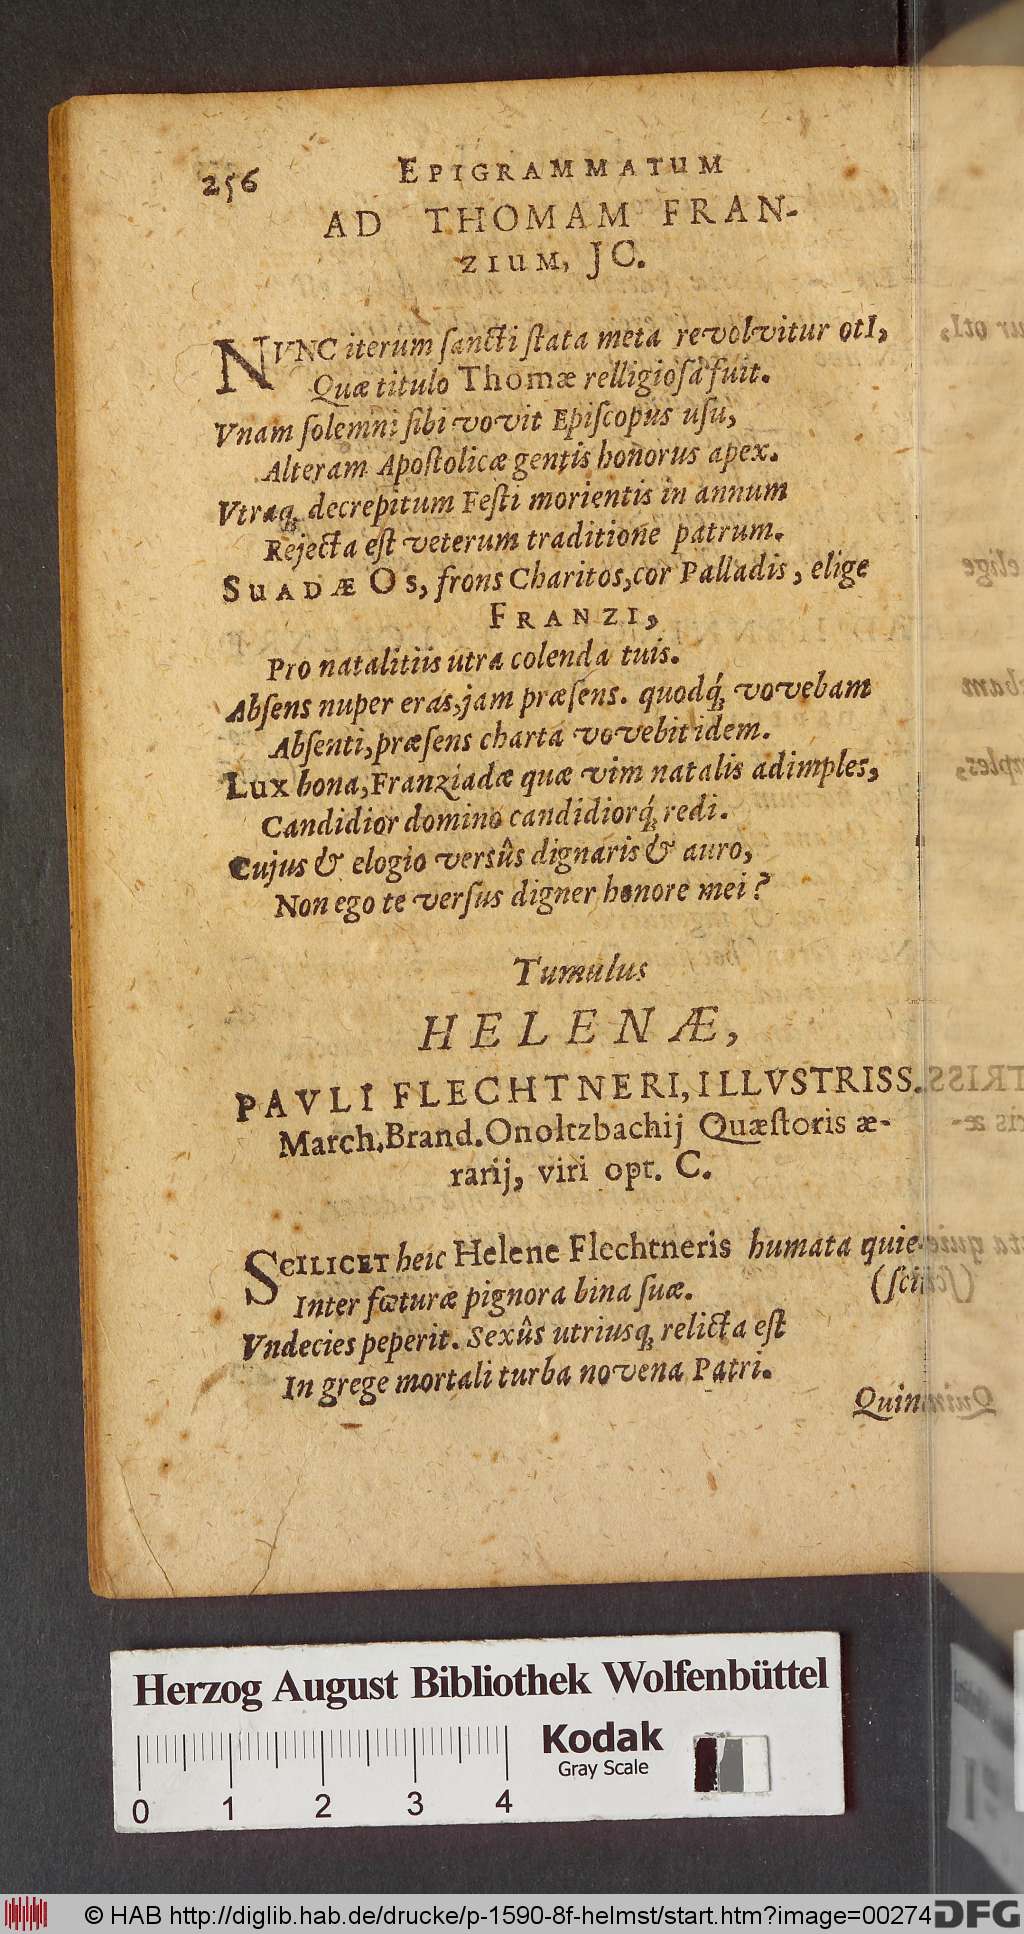 256 EPIGRAMMATUM
AD THOMAM FRAN-
ZIUM, JC.
NVNC iterum sancti stata meta revolvitur otI,
Quæ titulo Thomæ relligiosa fuit.
Vnam solemni sibi vovit Episcopus usu,
Alteram Apostolicæ gentis honorus apex.
Vtraq; decrepitum Festi morientis in annum
Rejecta est veterum traditione patrum.
SUADÆ OS, frons Charitos, cor Palladis, elige
FRANZI,
Pro natalitiis utra colenda tuis.
Absens nuper eras, jam præsens. quodq́; vovebam
Absenti, præsens charta vovebit idem.
Lux bona, Franziadæ quæ vim natalis adimples,
Candidior domino candidiorq́; redi.
Cujus & elogio versûs dignaris & auro,
Non ego te versus digner honore mei?
Tumulus
HELENÆ,
PAVLI FLECHTNERI, ILLVSTRISS.
March. Brand. Onoltzbachij Quæstoris æ-
rarij, viri opt. C.
SCILICET heic Helene Flechtneris humata quie-
Inter fœturæ pignora bina suæ. (scit
Vndecies peperit. Sexûs utriusq; relicta est
In grege mortali turba novena Patri.
Quin
Herzog August Bibliothek Wolfenbüttel
Kodak
Gray Scale
0 1 2 3 4
© HAB http://diglib.hab.de/drucke/p-1590-8f-helmst/start.htm?image=00274
DFG